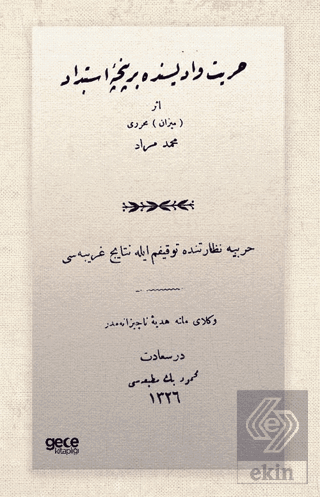 حريت واديسنده بر پنچهٔ استبداد
اثر
(ميزان) محررى
محمد مراد
حربيه نظارتنده توقيفم ايله نتايج غريبه سى
وكلاى ملته هديهٔ ناچيزانه مدر
درسعادت
محمود بك مطبعه سى
١٣٢٦
gece
kitaplığı
ekin